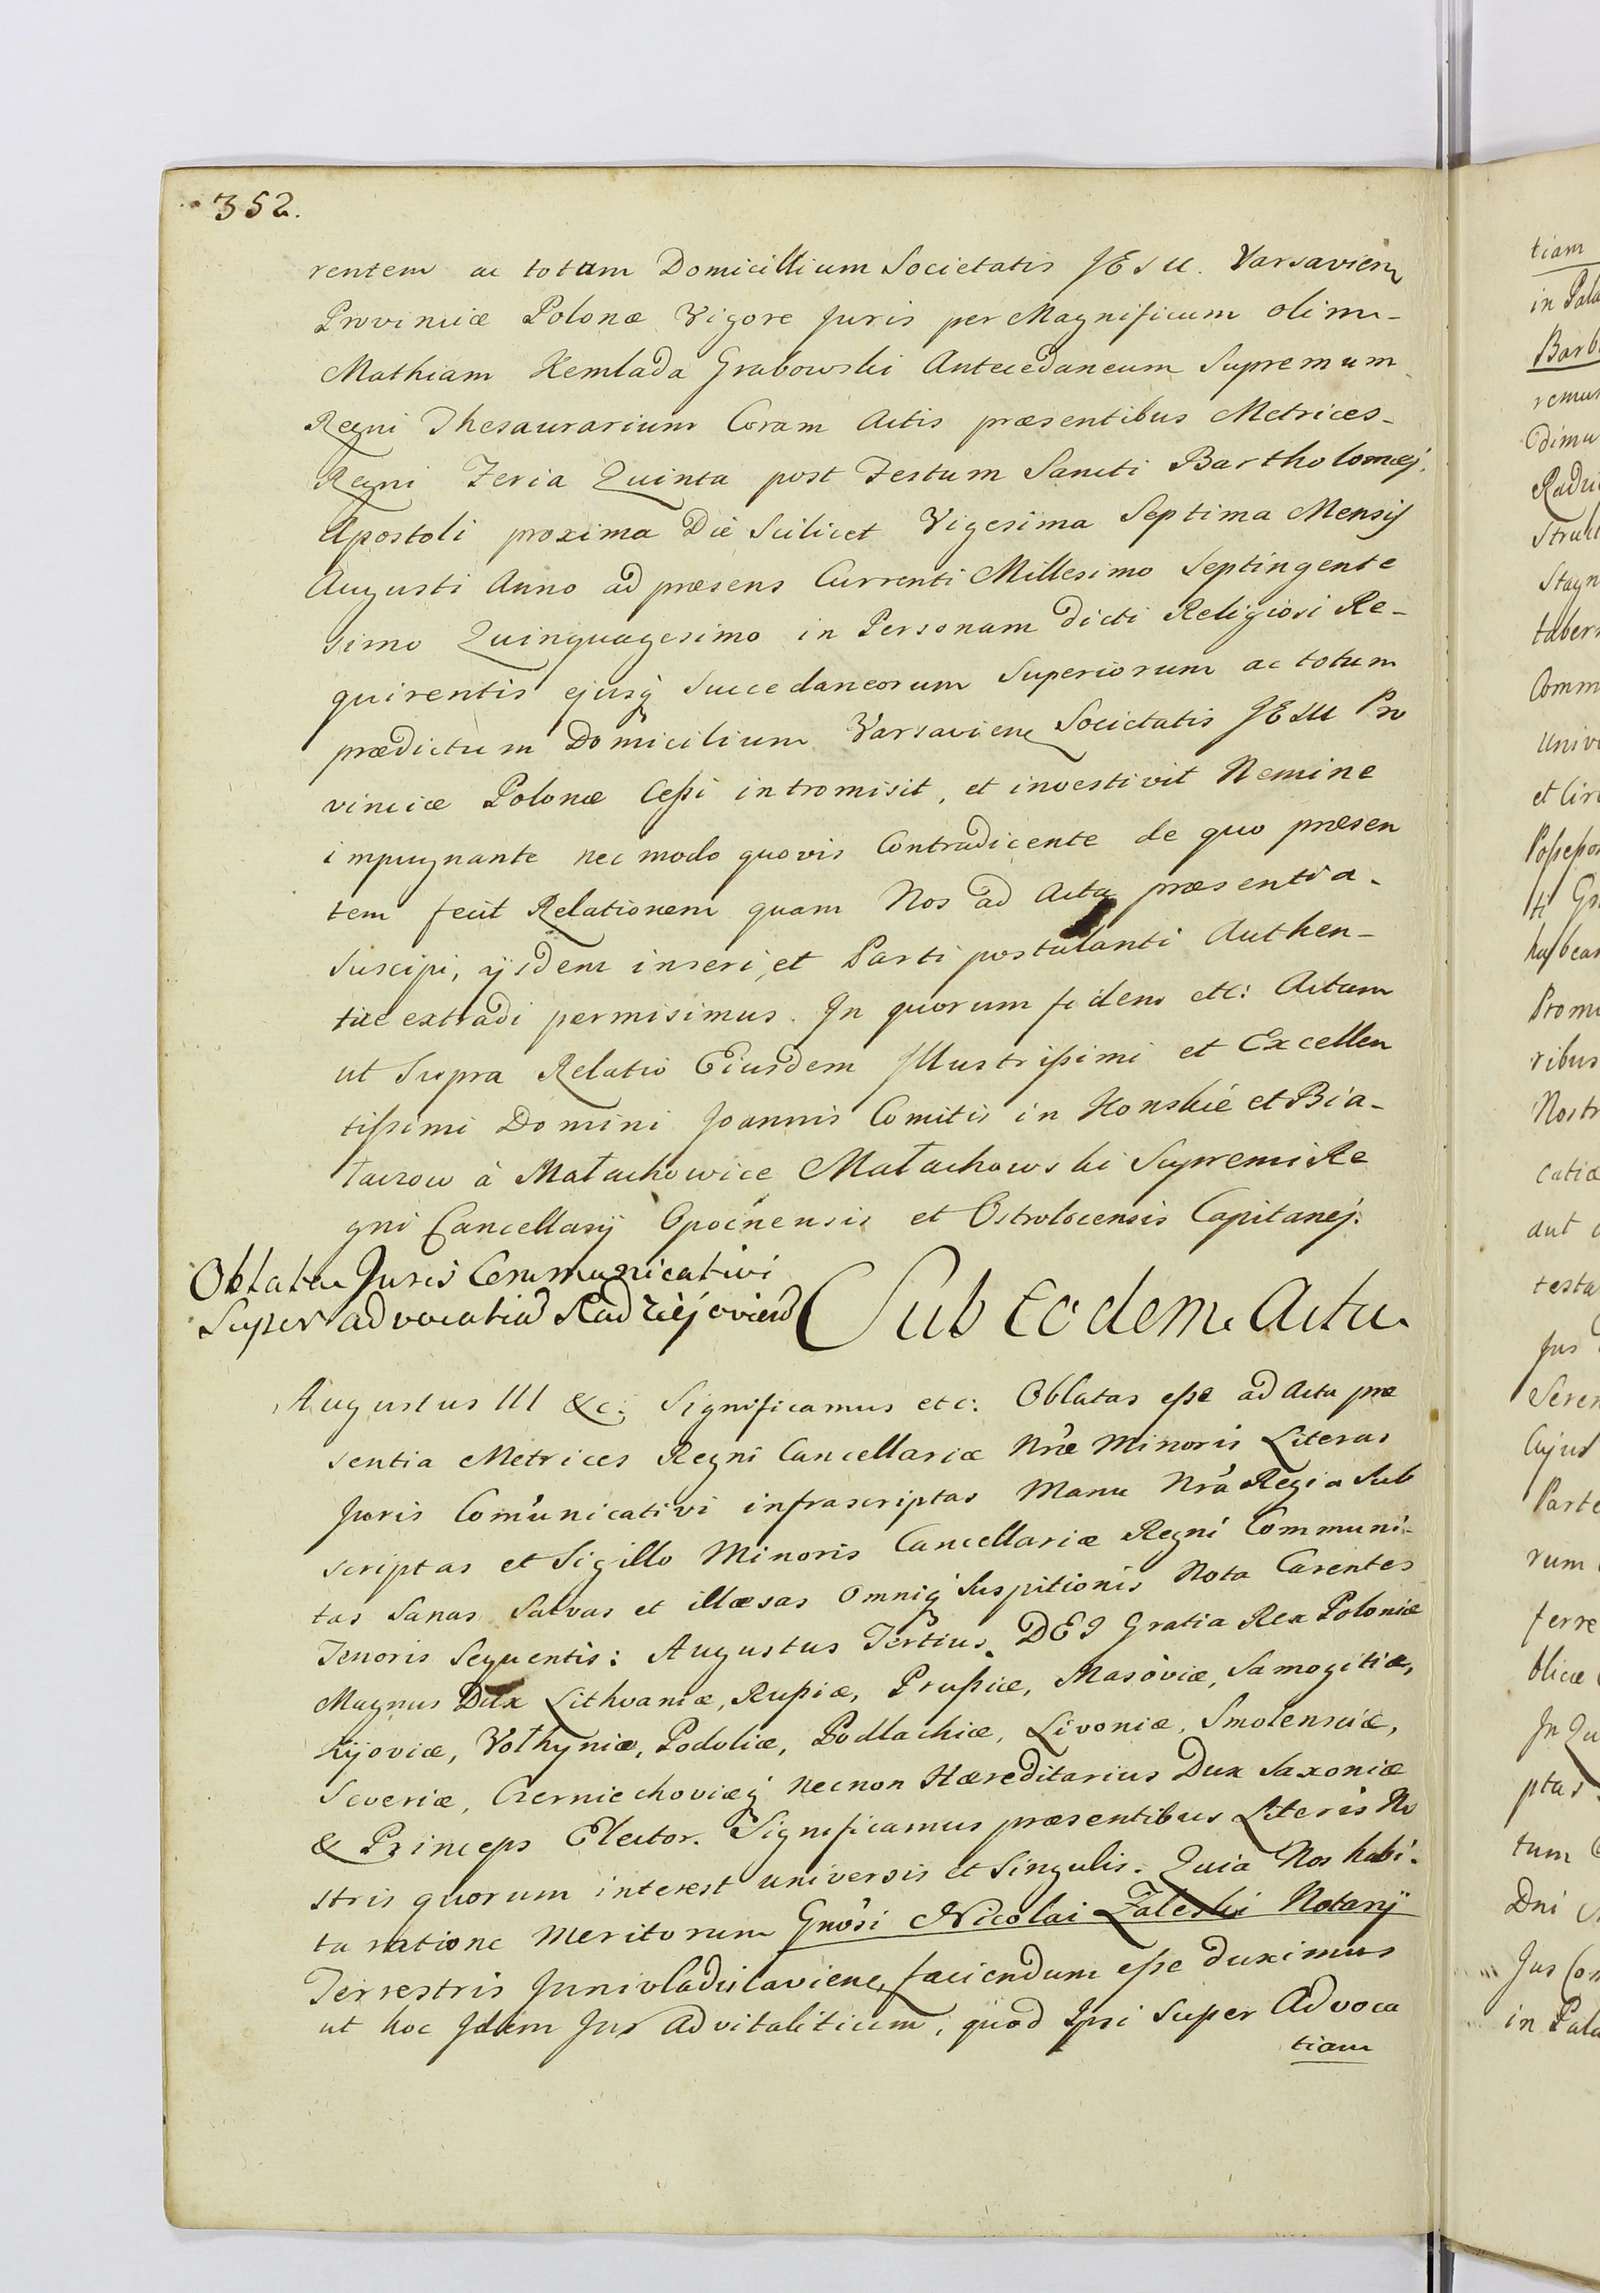 352.
rentem ac totam Domicillium Societatis JESU. Varsavien
Provinciæ Polonæ Vigore Juris per Magnificum olim-
Mathiam Kemlada Grabowski Antecedaneum Supremum
Regni Thesaurarium Coram Actis præsentibus Metrices-
Regni Feria Quinta post Festum Sancti Bartholomæj.
Apostoli proxima Die Scilicet Vigesima Septima Mensis
Augusti Anno ad præsens Currenti Millesimo Septingente
simo Quinquagesimo in Personam dicti Religiosi Re-
quirentis ejusq̃ Succedaneorum Superiorum ac totum
prædictum Domicilium Varsavien Societatis JESU Pro
vinciæ Polonæ Cessi intromisit, et investivit Nemine
impugnante nec modo quovis Contradicente de quo præsen
tem fecit Relationem quam Nos ad Acta præsentia.
Suscipi, ijsdem inseri, et Parti postulanti Authen-
tice extradi permisimus. In quorum fidem etc: Actum
ut Supra Relatio Eiusdem Illustrissimi et Excellen
tissimi Domini Joannis Comitis in Konskie et Bia-
łaczow à Małachowice Małachowski Supremi Re
gni Cancellarij Opocnensis et Ostrolocensis Capitanej.
Oblata Juris Communicativi
Super advocatia Radziejoviens
Sub Eodem Actu.
Augustus III &c: Significamus etc: Oblatas esse ad Acta præ
sentia Metrices Regni Cancellariæ Nræ Minoris Literas
Juris Com̃unicativi infrascriptas Manu Nrã Regia Sub
scriptas et Sigillo Minoris Cancellariæ Regni Communi-
tas Sanas Salvas et illæsas Omniq̃ Suspitionis Nota Carentes
Tenoris Sequentis: Augustus Tertius DEI Gratia Rex Poloniæ
Magnus Dux Lithvaniæ, Russiæ, Prussiæ, Masoviæ, Samogitiæ,
Kijoviæ, Volhyniæ, Podoliæ, Podlachiæ, Livoniæ, Smolensciæ,
Severiæ, Czerniechoviæq̃ necnon Hæreditarius Dux Saxoniæ
& Princeps Elector. Significamus præsentibus Literis No
stris quorum interest universis et Singulis. Quia Nos habi-
ta ratione Meritorum Gnosi Nicolai Zaleski Notarij
Terrestris Junivladislavien, faciendum esse duximus
ut hoc Idem Jus advitalitium, quod Ipsi Super Advoca
tiam